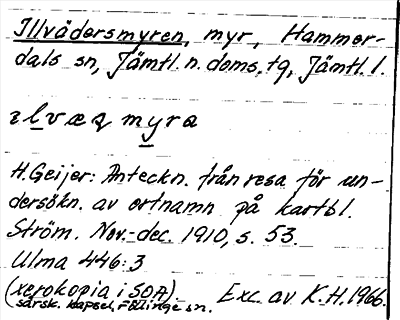 Illvädersmyren, myr, Hammer-
dals sn, Jämtl. n. doms. tg, Jämtl. l.
ɪlvæʀmyra
H. Geijer: Anteckn. från resa för un-
dersökn. av ortnamn på kartbl.
Ström. Nov.-dec. 1910, s. 53.
Ulma 446:3
(xerokopia i SOA). Exc. av K.H. 1966.
särsk. kapsel, Föllinge sn.